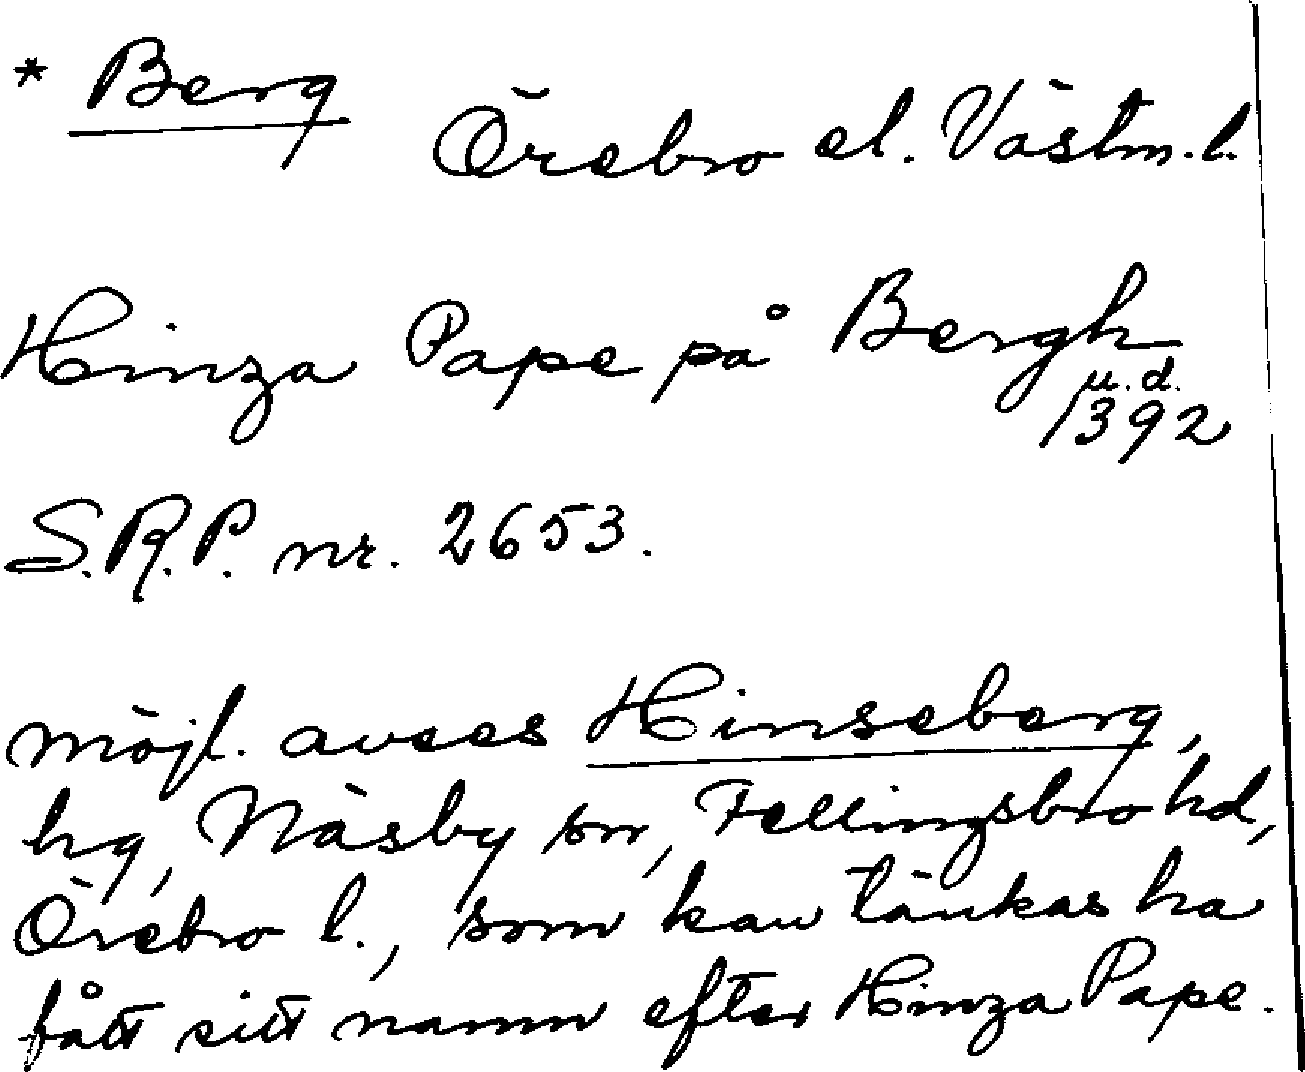 * Berg
Örebro el. Västm. l.
Hinza Pape på Bergh
u. d.
1392
S.R.P. nr. 2653.
möjl. avses Hinseberg,
hg, Näsby sn, Fellingsbro hd,
Örebro l., som kan tänkas ha
fått sitt namn efter Hinza Pape.